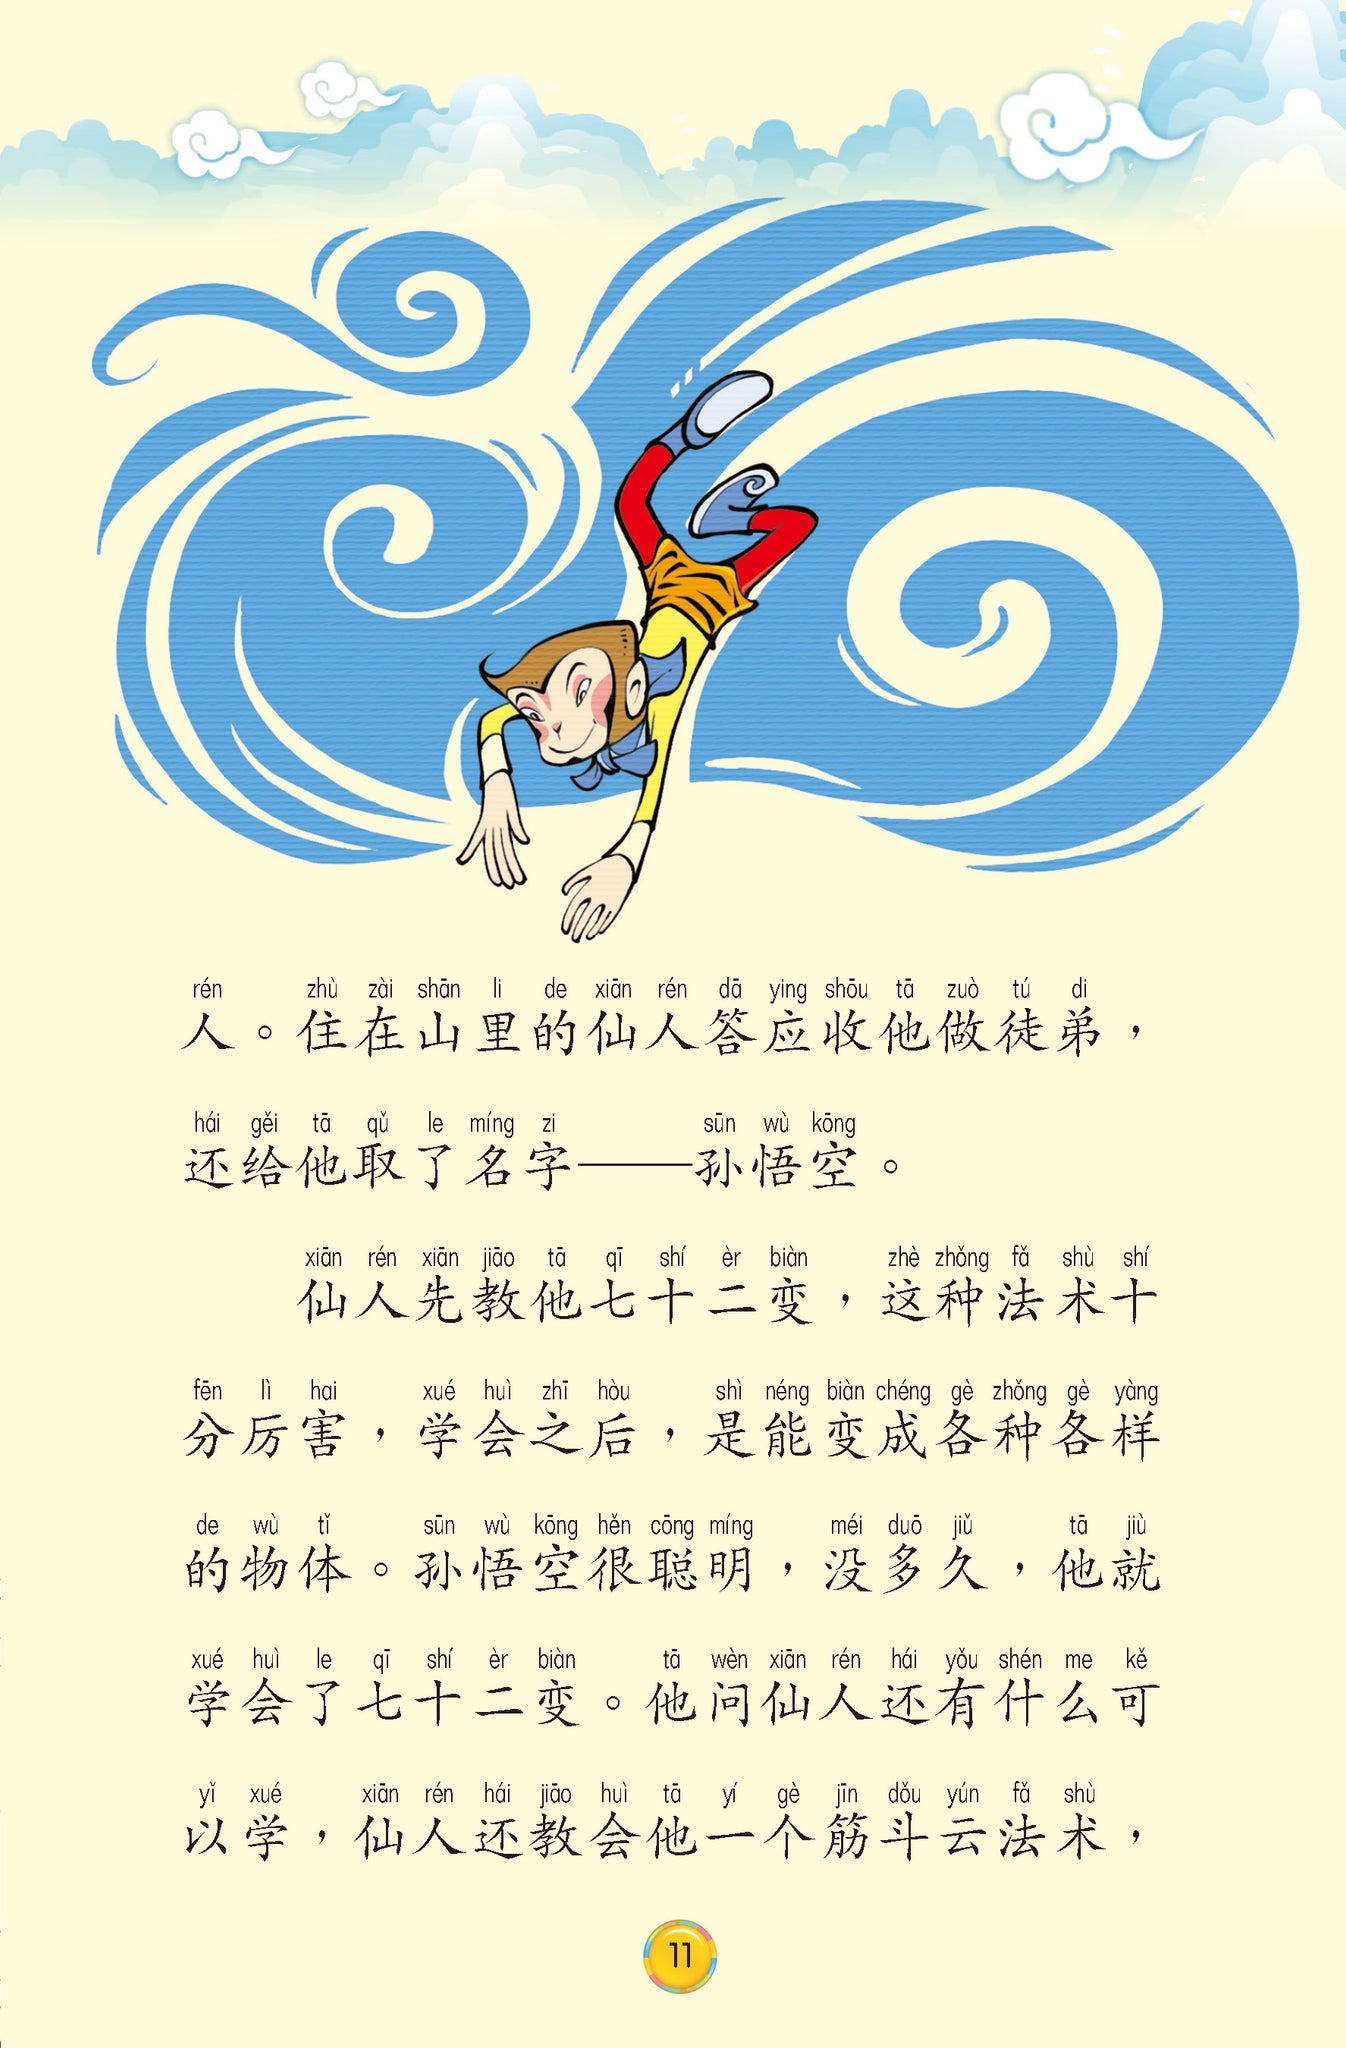 rén zhù zài shān li de xiān rén dā ying shōu tā zuò tú di
人。住在山里的仙人答应收他做徒弟，
hái gěi tā qǔ le míng zi sūn wù kōng
还给他取了名字——孙悟空。
xiān rén xiān jiāo tā qī shí èr biàn zhè zhǒng fǎ shù shí
仙人先教他七十二变，这种法术十
fēn lì hai xué huì zhī hòu shì néng biàn chéng gè zhǒng gè yàng
分厉害，学会之后，是能变成各种各样
de wù tǐ sūn wù kōng hěn cōng míng méi duō jiǔ tā jiù
的物体。孙悟空很聪明，没多久，他就
xué huì le qī shí èr biàn tā wèn xiān rén hái yǒu shén me kě
学会了七十二变。他问仙人还有什么可
yǐ xué xiān rén hái jiāo huì tā yí gè jīn dǒu yún fǎ shù
以学，仙人还教会他一个筋斗云法术，
11